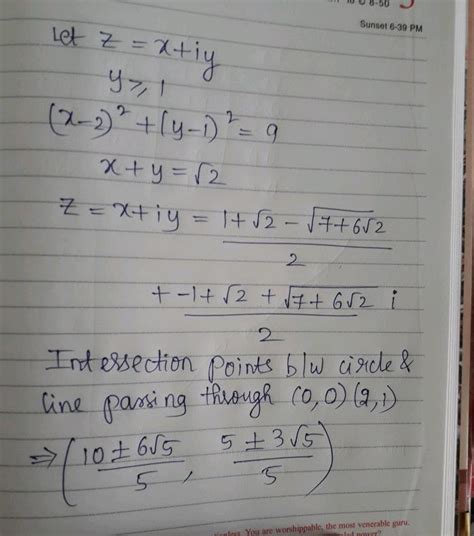 10 C 8-50
Sunset 6-39 PM
Let z = x+iy
y ≥ 1
(x-2)² + (y-1)² = 9
x + y = √2
z = x+iy = (1+√2 - √(7+6√2))/2
+ (-1+√2 + √(7+6√2))/2 i
Intersection points b/w circle &
line passing through (0,0) (2,1)
⇒ ((10 ± 6√5)/5, (5 ± 3√5)/5)
You are worshippable, the most venerable guru.
power?